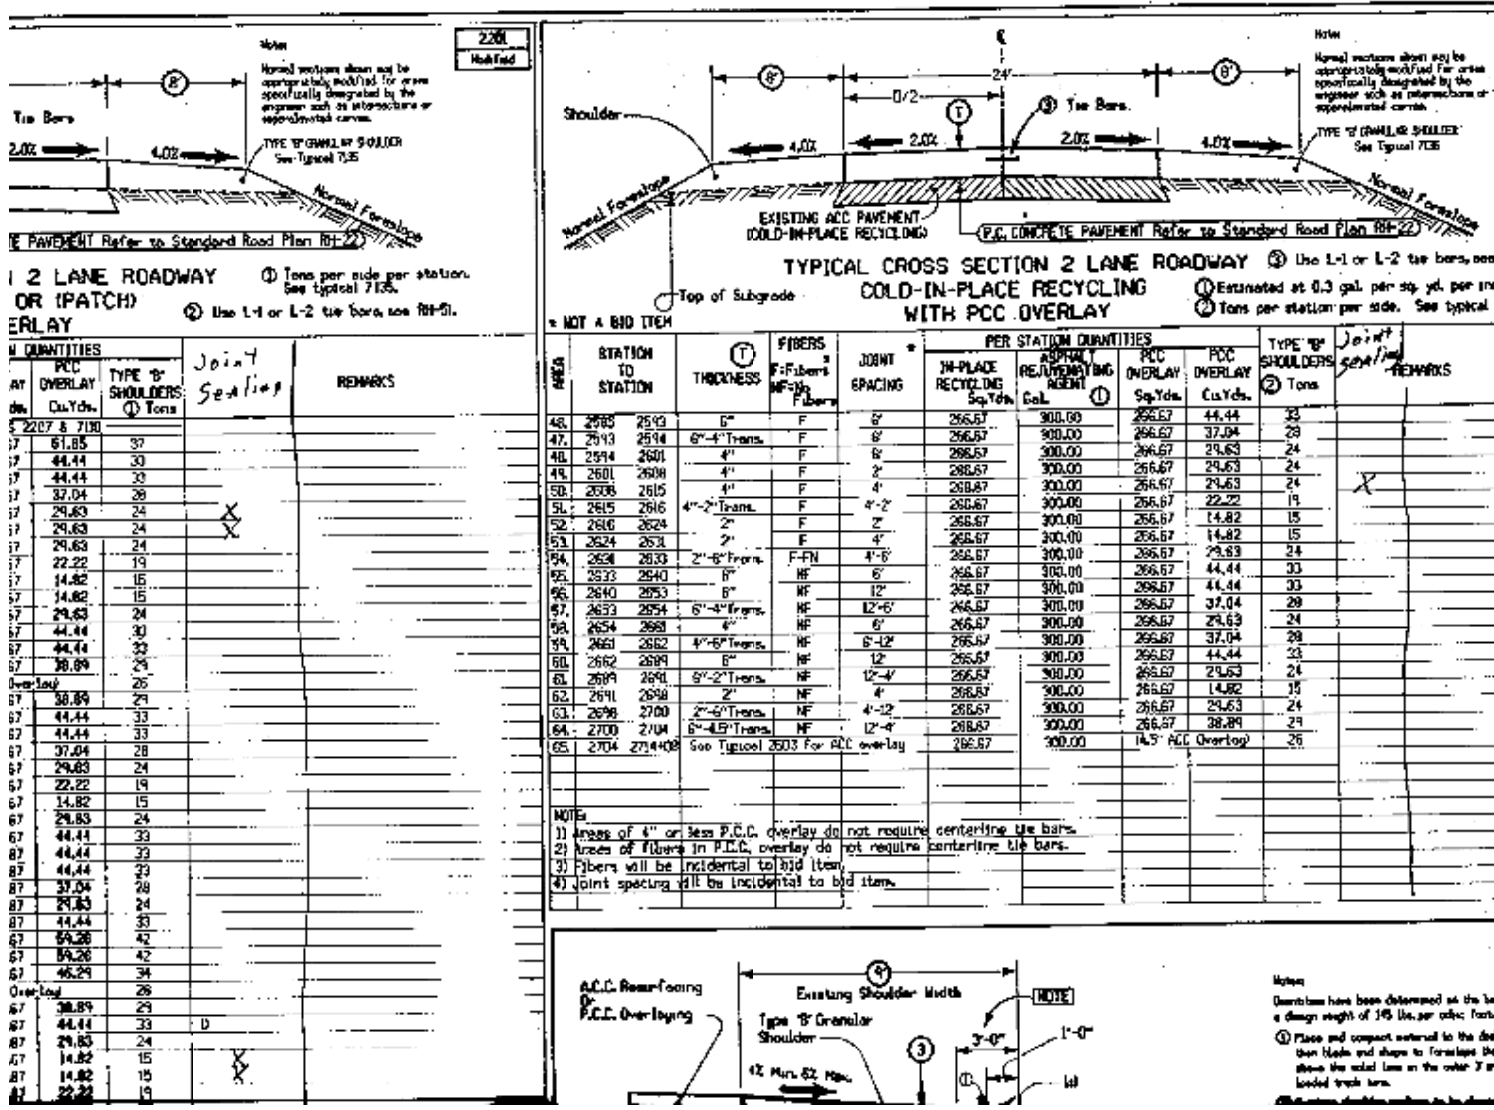 2201
Modified
Note:
Normal sections shown may be
appropriately modified for areas
specifically designated by the
engineer such as intersections or
superelevated curves.
8'
Tie Bars
2.0%
4.0%
TYPE "B" GRANULAR SHOULDER
See Typical 7135
Normal Foreslope
PAVEMENT Refer to Standard Road Plan RH-22
2 LANE ROADWAY
OR (PATCH)
① Tons per side per station.
See typical 7135.
② Use L-1 or L-2 tie bars, see RH-51.
QUANTITIES
PCC
OVERLAY
Cu.Yds.
TYPE "B"
SHOULDERS
① Tons
Joint
Sealing
REMARKS
2207 & 7130
61.85 37
44.44 33
44.44 33
37.04 28
29.63 24 X
29.63 24 X
29.63 24
22.22 19
14.82 15
14.82 15
29.63 24
44.44 33
44.44 33
38.89 29
Overlay) 26
38.89 29
44.44 33
44.44 33
37.04 28
29.63 24
22.22 19
14.82 15
29.63 24
44.44 33
44.44 33
44.44 33
37.04 28
29.63 24
44.44 33
59.26 42
59.26 42
46.29 34
Overlay 26
38.89 29
44.44 33
29.63 24
14.82 15 X
14.82 15 X
22.22 19
℄
24'
8'
8'
D/2
T
③ Tie Bars.
Shoulder
4.0%
2.0%
2.0%
4.0%
Note:
Normal sections shown may be
appropriately modified for areas
specifically designated by the
engineer such as intersections or
superelevated curves.
TYPE "B" GRANULAR SHOULDER
See Typical 7135
Normal Foreslope
Normal Foreslope
EXISTING ACC PAVEMENT
(COLD-IN-PLACE RECYCLING)
P.C. CONCRETE PAVEMENT Refer to Standard Road Plan RH-22
Top of Subgrade
TYPICAL CROSS SECTION 2 LANE ROADWAY
COLD-IN-PLACE RECYCLING
WITH PCC OVERLAY
③ Use L-1 or L-2 tie bars, see
① Estimated at 0.3 gal. per sq. yd. per
② Tons per station per side. See typical
* NOT A BID ITEM
AREA
STATION
TO
STATION
T
THICKNESS
FIBERS
*
F=Fibers
NF=No
Fibers
JOINT *
SPACING
PER STATION QUANTITIES
IN-PLACE
RECYCLING
Sq.Yds.
ASPHALT
REJUVENATING
AGENT
Gal. ①
PCC
OVERLAY
Sq.Yds.
PCC
OVERLAY
Cu.Yds.
TYPE "B"
SHOULDERS
② Tons
Joint
sealing
REMARKS
46. 2585 2593 6" F 6' 266.67 300.00 266.67 44.44 33
47. 2593 2594 6"-4" Trans. F 6' 266.67 300.00 266.67 37.04 28
48. 2594 2601 4" F 6' 266.67 300.00 266.67 29.63 24
49. 2601 2608 4" F 2' 266.67 300.00 266.67 29.63 24
50. 2608 2615 4" F 4' 266.67 300.00 266.67 29.63 24 X
51. 2615 2616 4"-2" Trans. F 4'-2' 266.67 300.00 266.67 22.22 19
52. 2616 2624 2" F 2' 266.67 300.00 266.67 14.82 15
53. 2624 2631 2" F 4' 266.67 300.00 266.67 14.82 15
54. 2631 2633 2"-6" Trans. F-FN 4'-6' 266.67 300.00 266.67 29.63 24
55. 2633 2640 6" NF 6' 266.67 300.00 266.67 44.44 33
56. 2640 2653 6" NF 12' 266.67 300.00 266.67 44.44 33
57. 2653 2654 6"-4" Trans. NF 12'-6' 266.67 300.00 266.67 37.04 28
58. 2654 2661 4" NF 6' 266.67 300.00 266.67 29.63 24
59. 2661 2662 4"-6" Trans. NF 6'-12' 266.67 300.00 266.67 37.04 28
60. 2662 2689 6" NF 12' 266.67 300.00 266.67 44.44 33
61. 2689 2691 6"-2" Trans. NF 12'-4' 266.67 300.00 266.67 29.63 24
62. 2691 2698 2" NF 4' 266.67 300.00 266.67 14.82 15
63. 2698 2700 2"-6" Trans. NF 4'-12' 266.67 300.00 266.67 29.63 24
64. 2700 2704 6"-4.5" Trans. NF 12'-4' 266.67 300.00 266.67 38.89 29
65. 2704 2714+08 See Typical 2603 for ACC overlay 266.67 300.00 (4.5" ACC Overlay) 26
NOTE:
1) Areas of 4" or less P.C.C. overlay do not require centerline tie bars.
2) Areas of fibers in P.C.C. overlay do not require centerline tie bars.
3) Fibers will be incidental to bid item.
4) Joint spacing will be incidental to bid item.
A.C.C. Resurfacing
Or
P.C.C. Overlaying
Existing Shoulder Width
NOTE
Type "B" Granular
Shoulder
3
3'-0"
1'-0"
4% Min. 6% Max.
Notes:
Quantities have been determined on the
a design weight of 145 lbs. per cubic foot
① Place and compact material to the
then blade and shape to foreslope
above the solid line in the outer 3'
loaded truck